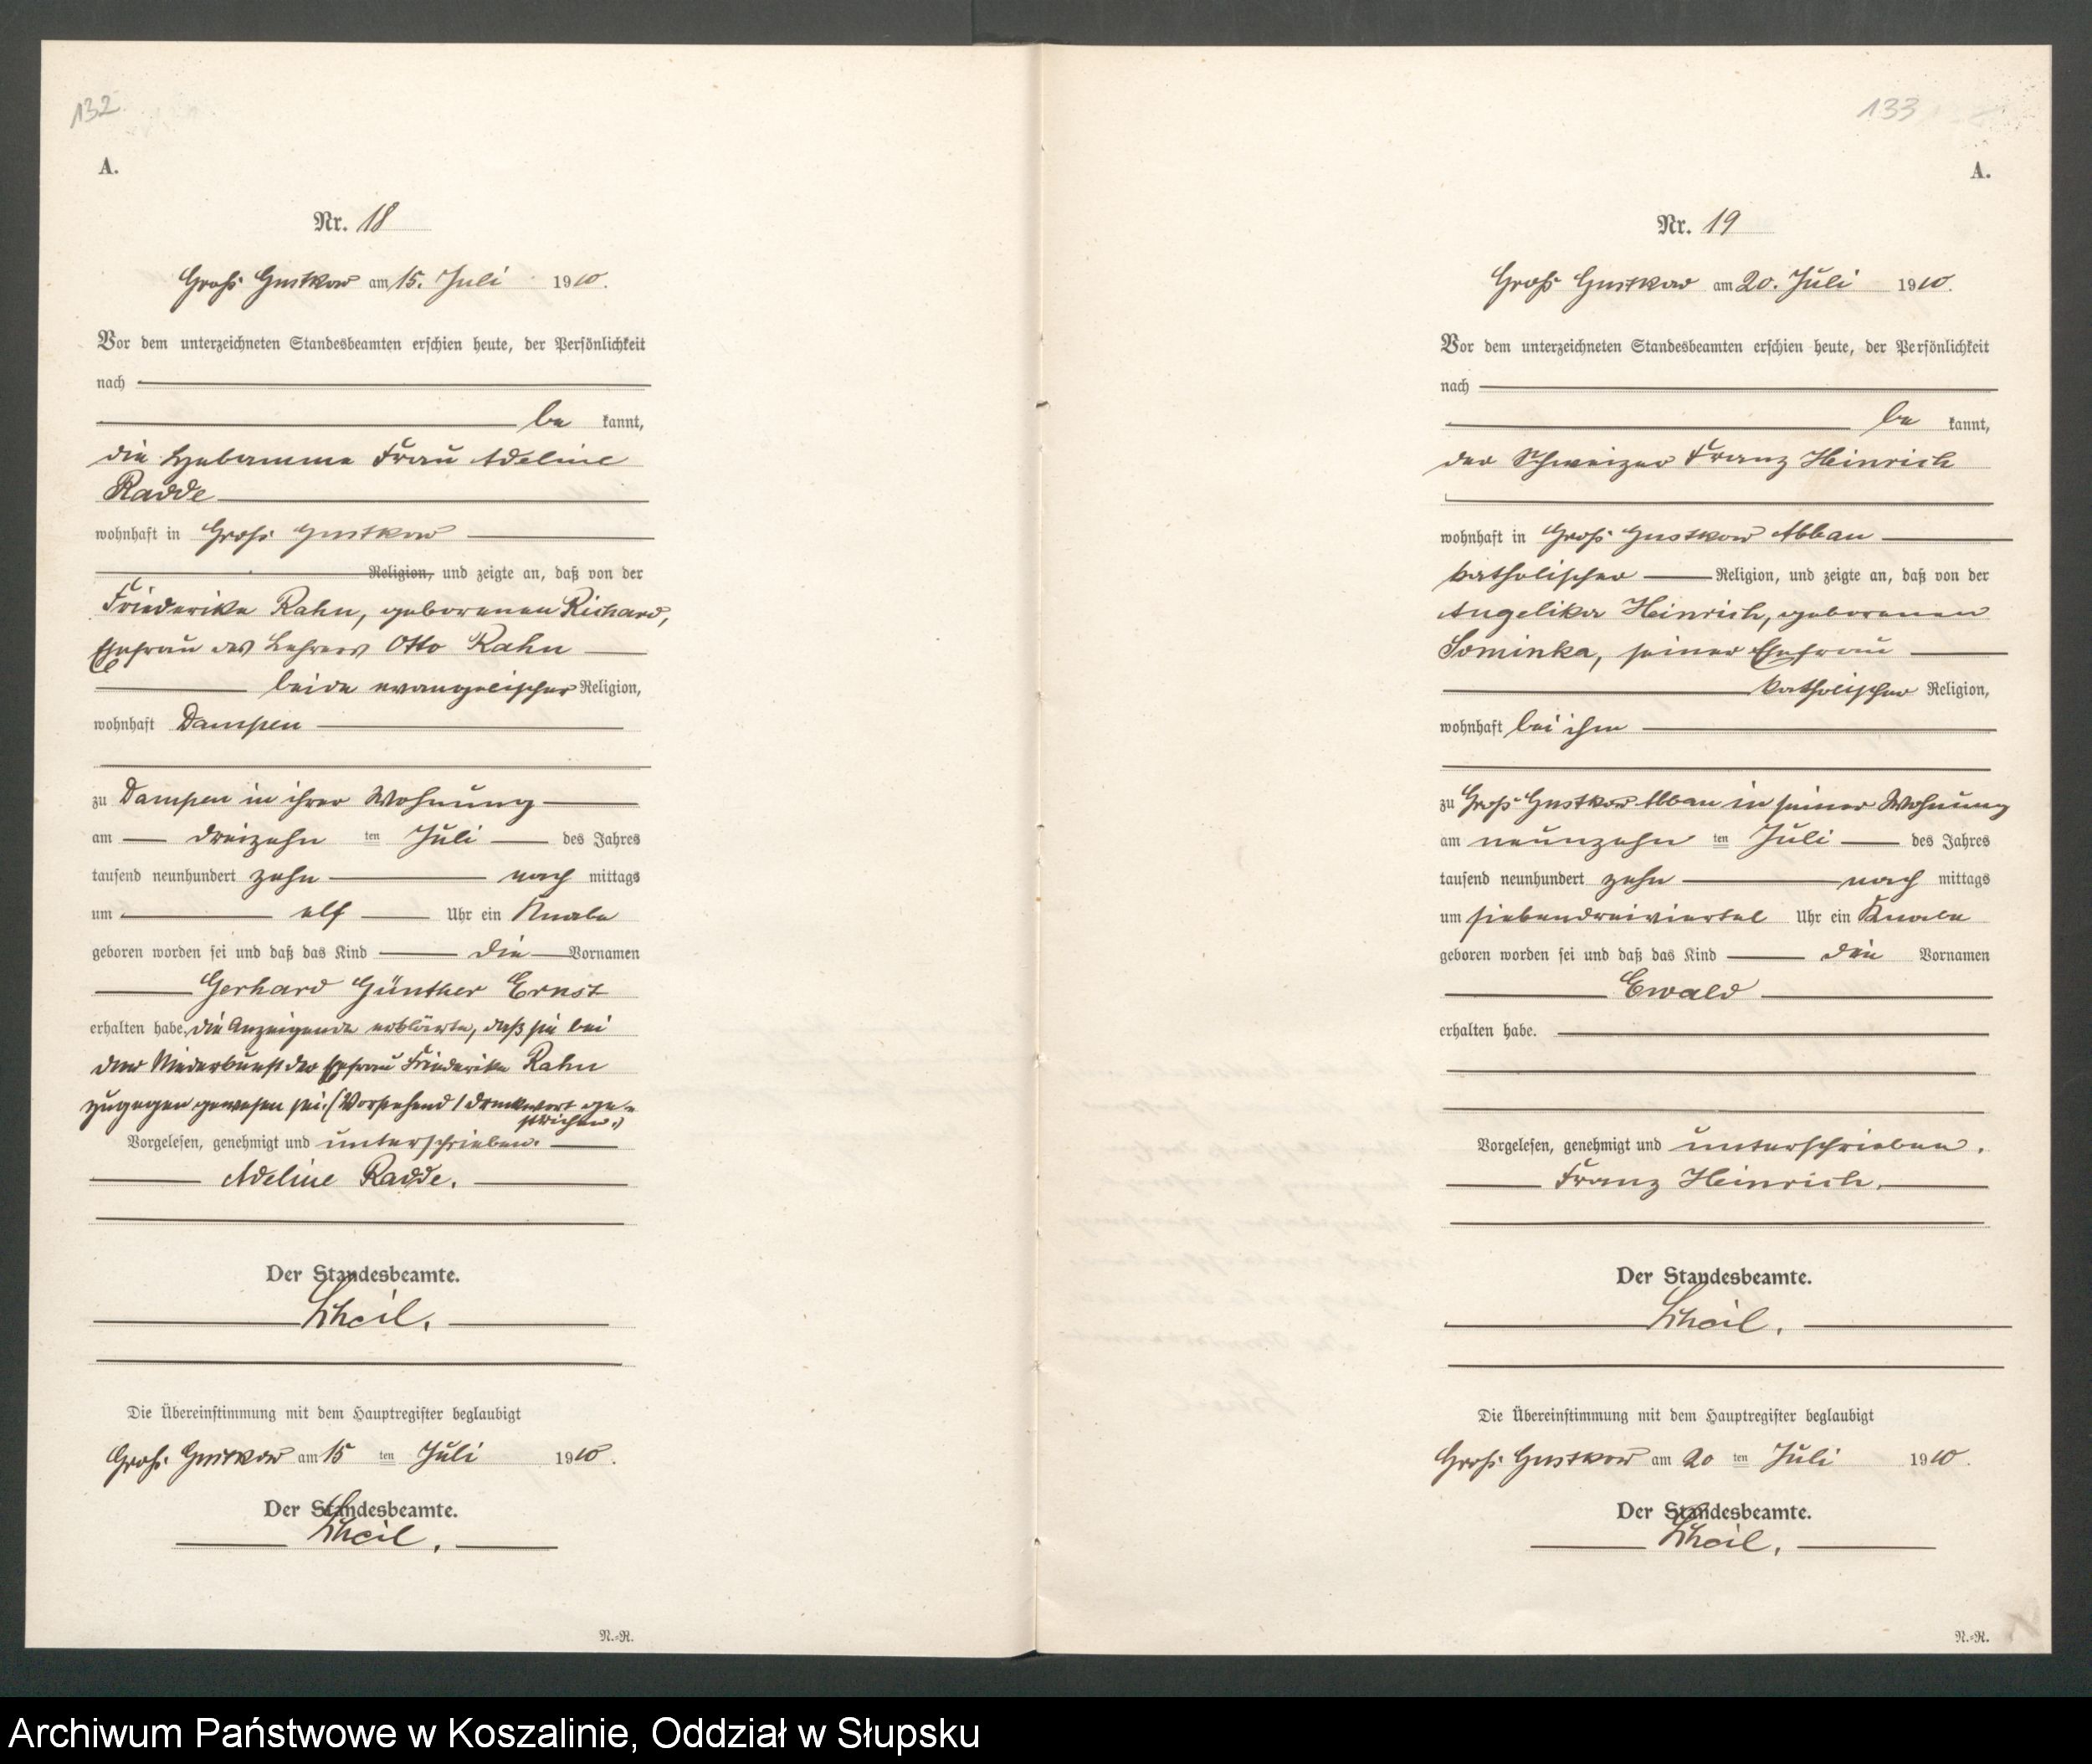 132
A.
Nr. 18
Groß Gustkow am 15. Juli 1910.
Vor dem unterzeichneten Standesbeamten erschien heute, der Persönlichkeit
nach
be kannt,
die Hebamme Frau Adeline
Radde
wohnhaft in Groß Gustkow
Religion, und zeigte an, daß von der
Friederike Rahn, geborenen Richard,
Ehefrau des Lehrers Otto Rahn
beide evangelischer Religion,
wohnhaft Dampen
zu Dampen in ihrer Wohnung
am dreizehn ten Juli des Jahres
tausend neunhundert zehn nach mittags
um elf Uhr ein Knabe
geboren worden sei und daß das Kind die Vornamen
Gerhard Günther Ernst
erhalten habe, die Anzeigende erklärte, daß sie bei
der Niederkunft der Ehefrau Friederike Rahn
zugegen gewesen sei. (Vorstehend 1 Druckwort ge-
strichen.)
Vorgelesen, genehmigt und unterschrieben.
Adeline Radde.
Der Standesbeamte.
Die Übereinstimmung mit dem Hauptregister beglaubigt
Groß Gustkow am 15 ten Juli 1910.
Der Standesbeamte.
N.=R.
133
A.
Nr. 19
Groß Gustkow am 20. Juli 1910.
Vor dem unterzeichneten Standesbeamten erschien heute, der Persönlichkeit
nach
be kannt,
der Schweizer Franz Heinrich
wohnhaft in Groß Gustkow Abbau
katholischer Religion, und zeigte an, daß von der
Angelika Heinrich, geborenen
Sominka, seiner Ehefrau
katholischer Religion,
wohnhaft bei ihm
zu Groß Gustkow Abbau in seiner Wohnung
am neunzehn ten Juli des Jahres
tausend neunhundert zehn nach mittags
um siebendreiviertel Uhr ein Knabe
geboren worden sei und daß das Kind den Vornamen
Ewald
erhalten habe.
Vorgelesen, genehmigt und unterschrieben.
Franz Heinrich.
Der Standesbeamte.
Die Übereinstimmung mit dem Hauptregister beglaubigt
Groß Gustkow am 20 ten Juli 1910.
Der Standesbeamte.
N.=R.
Archiwum Państwowe w Koszalinie, Oddział w Słupsku